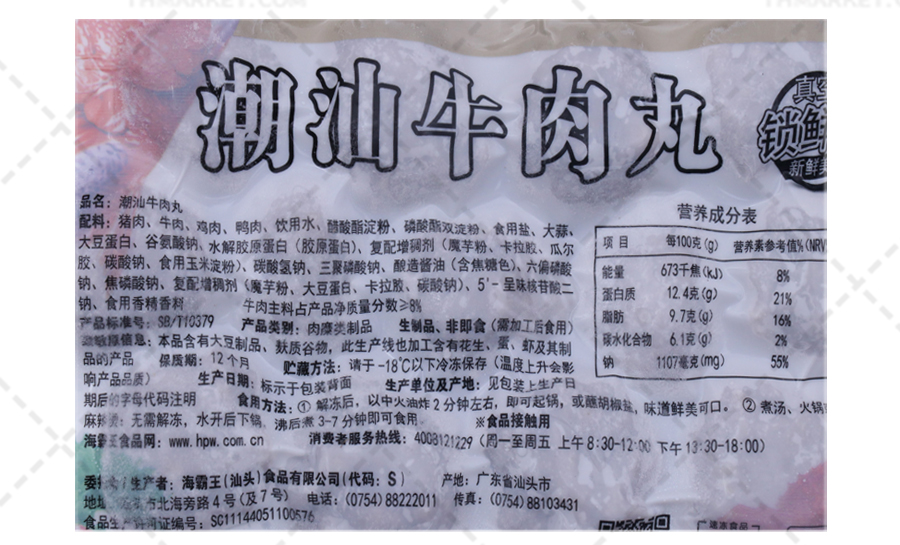 潮汕牛肉丸
真空
锁鲜
新鲜美
品名：潮汕牛肉丸
配料：猪肉、牛肉、鸡肉、鸭肉、饮用水、醋酸酯淀粉、磷酸酯双淀粉、食用盐、大蒜、
大豆蛋白、谷氨酸钠、水解胶原蛋白（胶原蛋白）、复配增稠剂（魔芋粉、卡拉胶、瓜尔
胶、碳酸钠、食用玉米淀粉）、碳酸氢钠、三聚磷酸钠、酿造酱油（含焦糖色）、六偏磷酸
钠、焦磷酸钠、复配增稠剂（魔芋粉、大豆蛋白、卡拉胶、碳酸钠）、5'-呈味核苷酸二
钠、食用香精香料 牛肉主料占产品净质量分数≥8%
产品标准号：SB/T10379 产品类别：肉糜类制品 生制品、非即食（需加工后食用）
致敏原信息：本品含有大豆制品、麸质谷物，此生产线也加工含有花生、蛋、虾及其制
品的产品 保质期：12个月 贮藏方法：请于-18℃以下冷冻保存（温度上升会影
响产品品质） 生产日期：标示于包装背面 生产单位及产地：见包装上生产日
期后的字母代码注明 食用方法：① 解冻后，以中火油炸2分钟左右，即可起锅，或蘸胡椒盐，味道鲜美可口。 ② 煮汤、火锅
麻辣烫：无需解冻，水开后下锅，沸后煮3-7分钟即可食用。 ※食品接触用
海霸王食品网：www.hpw.com.cn 消费者服务热线：4008121229（周一至周五 上午8:30-12:00 下午13:30-18:00）
委托方/生产者：海霸王（汕头）食品有限公司（代码：S） 产地：广东省汕头市
地址：汕头市北海旁路4号（及7号） 电话：(0754)88222011 传真：(0754)88103431
食品生产许可证编号：SC11144051100576
营养成分表
项目 每100克(g) 营养素参考值%(NRV
能量 673千焦(kJ) 8%
蛋白质 12.4克(g) 21%
脂肪 9.7克(g) 16%
碳水化合物 6.1克(g) 2%
钠 1107毫克(mg) 55%
广速冻食品